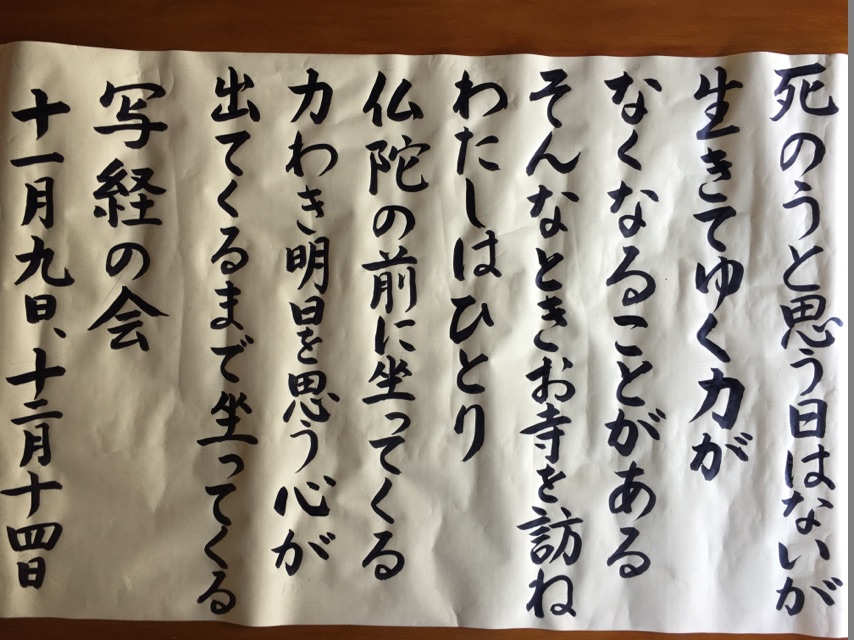 死のうと思う日はないが
生きてゆく力が
なくなることがある
そんなときお寺を訪ね
わたしはひとり
仏陀の前に坐ってくる
力わき明日を思う心が
出てくるまで坐ってくる
写経の会
十一月九日、十二月十四日